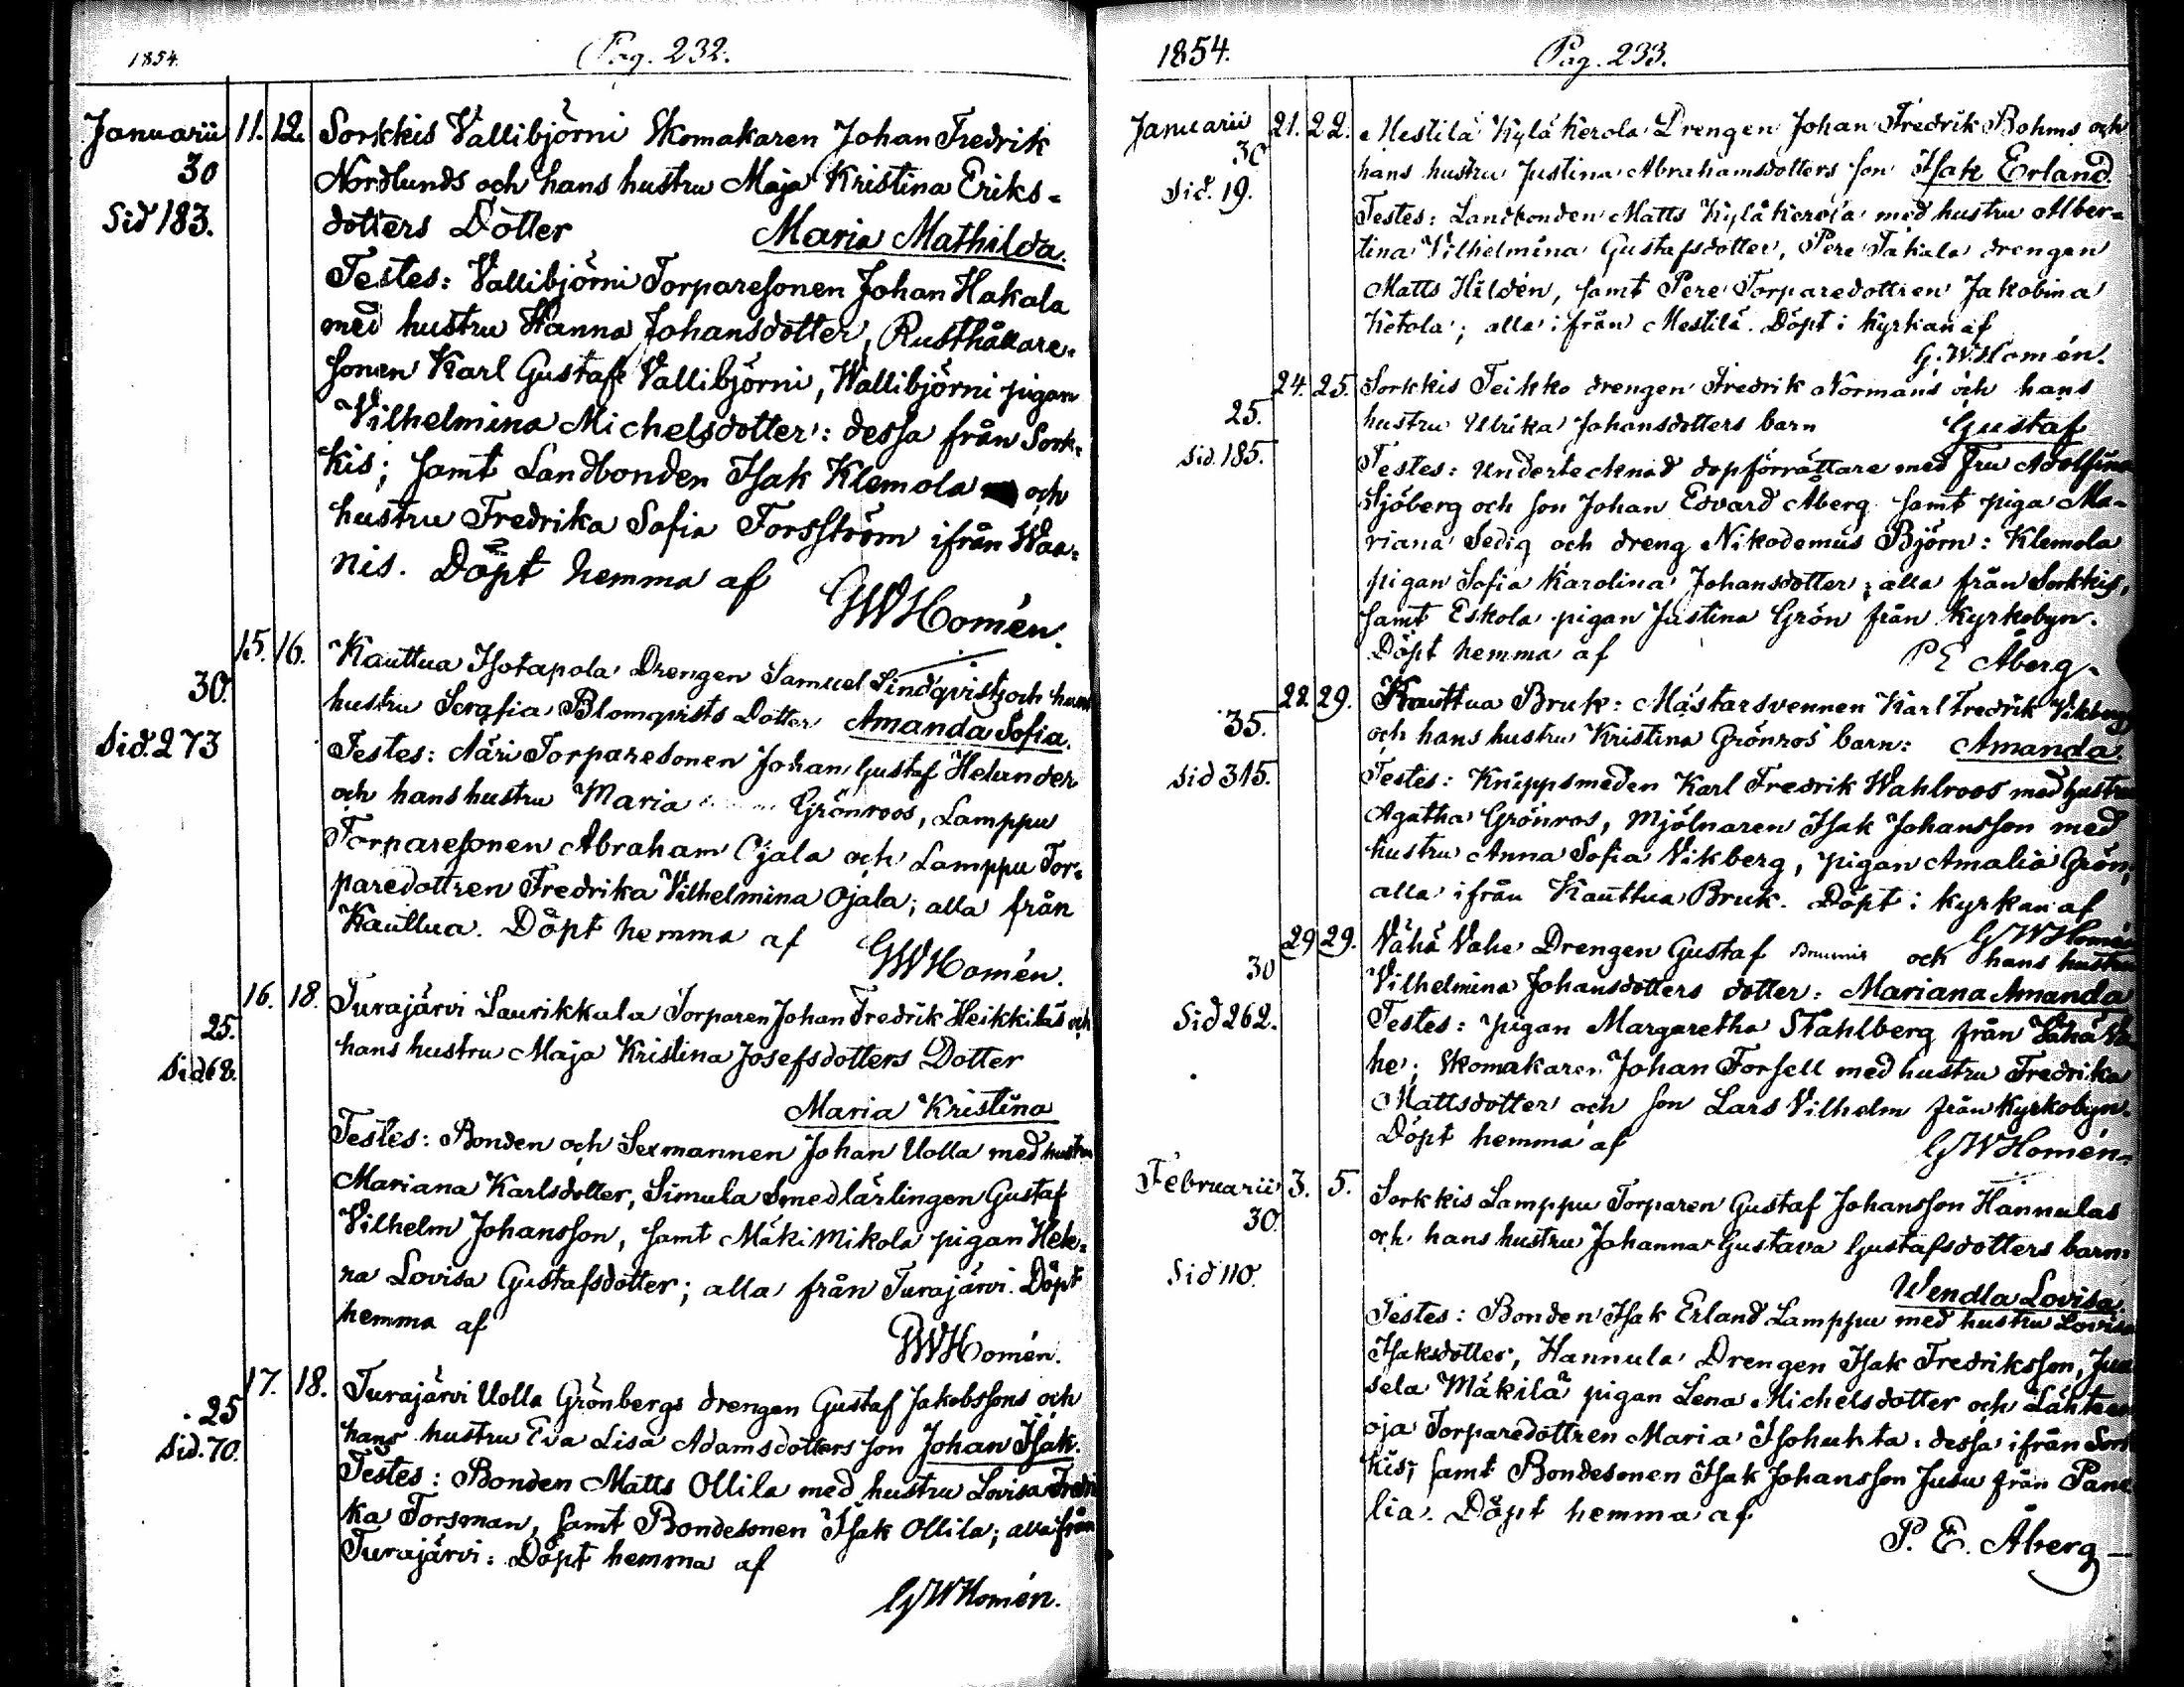 1854.
Pag. 232.
Januarii 11. 12. Sorkkis Vallibjörni Skomakaren Johan Fredrik
30 Nordlunds och hans hustru Maja Kristina Eriks=
Sid 183. dotters Dotter Maria Mathilda.
Testes: Vallibjörni Torparesonen Johan Hakala
med hustru Hanna Johansdotter, Rusthållare=
sonen Karl Gustaf Vallibjörni, Wallibjörni pigan
Vilhelmina Michelsdotter: dessa från Sork=
kis; samt Landbonden Isak Klemola och
hustru Fredrika Sofia Forsström ifrån Waa=
nis. Döpt hemma af
GWHomén.
15. 16. Kauttua Isotapola Drengen Samuel Lindqvists och hans
30. hustru Serafia Blomqvists Dotter Amanda Sofia.
Sid. 273 Testes: Näri Torparesonen Johan Gustaf Helander
och hans hustru Maria Grönroos, Lamppu
Torparesonen Abraham Ojala och Lamppu Tor=
paredottren Fredrika Vilhelmina Ojala; alla från
Kauttua. Döpt hemma af
GWHomén.
16. 18. Turajärvi Laurikkala Torparen Johan Fredrik Heikkiläs och
25. hans hustru Maja Kristina Josefsdotters Dotter
Sid 68. Maria Kristina
Testes: Bonden och Sexmannen Johan Uolla med hustru
Mariana Karlsdotter, Simula Smedlärlingen Gustaf
Vilhelm Johansson, samt Mäki Mikola pigan Hele=
na Lovisa Gustafsdotter; alla från Turajärvi. Döpt
hemma af
GWHomén.
17. 18. Turajärvi Uolla Grönbergs drengen Gustaf Jakobssons och
25 hans hustru Eva Lisa Adamsdotters son Johan Isak.
Sid. 70. Testes: Bonden Matts Ollila med hustru Lovisa Fredri
ka Forsman, samt Bondesonen Isak Ollila; alla från
Turajärvi: Döpt hemma af
GWHomén.
1854.
Pag. 233.
Januarii 21. 22. Mestilä Kylä Kerola Drengen Johan Fredrik Bohms och
30 hans hustru Justina Abrahamsdotters son Isak Erland.
Sid. 19. Testes: Landbonden Matts Kylä Kerola med hustru Alber=
tina Vilhelmina Gustafsdotter, Pere Takala drengen
Matts Hildén, samt Pere Torparedottren Jakobina
Ketola; alla ifrån Mestilä. Döpt i Kyrkan af
G.W.Homén.
24. 25. Sorkkis Teikko drengen Fredrik Normans och hans
25. hustru Ulrika Johansdotters barn Gustaf
Sid. 185. Testes: Undertecknad dopförrättare med Fru Adolfina
Sjöberg och son Johan Edvard Åberg samt piga Ma=
riana Sedig och dreng Nikodemus Björn: Klemola
pigan Sofia Karolina Johansdotter; alla från Sorkkis,
samt Eskola pigan Justina Grön från Kyrkobyn.
Döpt hemma af P E Åberg
28. 29. Kauttua Bruk: Mästarsvennen Karl Fredrik Vikbergs
35. och hans hustru Kristina Grönros barn: Amanda.
Sid 315. Testes: Knippsmeden Karl Fredrik Wahlroos med hustru
Agatha Grönros, Mjölnaren Isak Johansson med
hustru Anna Sofia Vikberg, pigan Amalia Grön;
alla ifrån Kauttua Bruk. Döpt i kyrkan af
GWHomén
29 29. Vähä Vahe Drengen Gustaf och hans hustru
30 Vilhelmina Johansdotters dotter: Mariana Amanda
Sid 262. Testes: pigan Margaretha Stahlberg från Vähä Va
he; Skomakaren Johan Forsell med hustru Fredrika
Mattsdotter och son Lars Vilhelm från Kyrkobyn.
Döpt hemma af GWHomén
Februarii 3. 5. Sorkkis Lamppu Torparen Gustaf Johansson Hannulas
30. och hans hustru Johanna Gustava Gustafsdotters barn:
Sid 110. Wendla Lovisa.
Testes: Bonden Isak Erland Lamppu med hustru Lovisa
Isaksdotter, Hannula Drengen Isak Fredriksson, Juu
sela Mäkilä pigan Lena Michelsdotter och Lähteen
oja Torparedottren Maria Isohuhta: dessa ifrån Sork
kis; samt Bondesonen Isak Johansson Jusu från Pane
lia. Döpt hemma af
P. E. Åberg